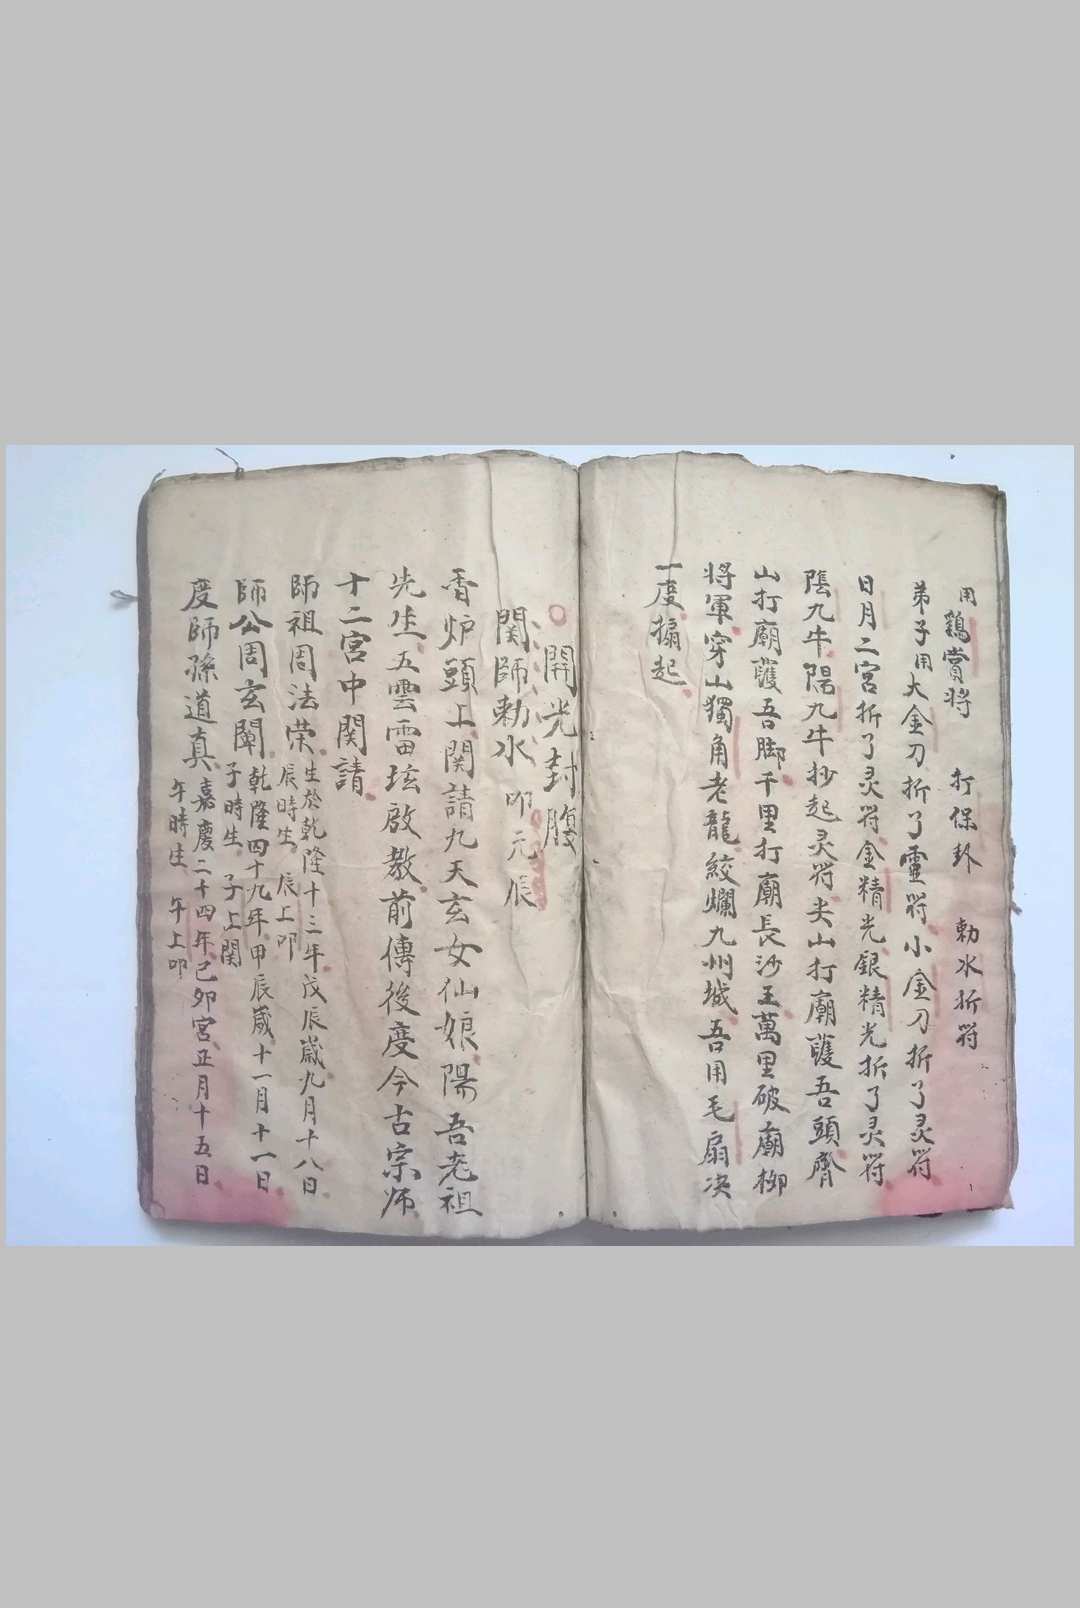 用鷄賞将 打保卦 勅水折符
弟子用大金刀折了靈符小金刀折了灵符
日月二宫折了灵符金精光銀精光折了灵符
陰九牛陽九牛抄起灵符尖山打廟護吾頭齊
山打廟護吾脚千里打廟長沙王萬里破廟柳
将軍穿山獨角老龍絞爛九州城吾用毛扇决
一度搧起
開光封腹
関師勅水 叩元辰
香炉頭上関請九天玄女仙娘陽吾老祖
先生五雲雷坛啟教前傳後度今古宗师
十二宮中関請
師祖周法荣生於乾隆十三年戊辰歲九月十八日
辰時生 辰上叩
師公周玄闡乾隆四十九年甲辰歲十一月十一日
子時生 子上関
度師孫道真嘉慶二十四年己卯宮正月十五日
午時生 午上叩